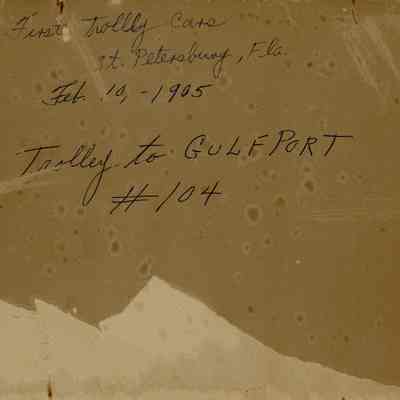 First Trolley Cars
St. Petersburg, Fla.
Feb. 10, - 1905
Trolley to GULFPORT
#104